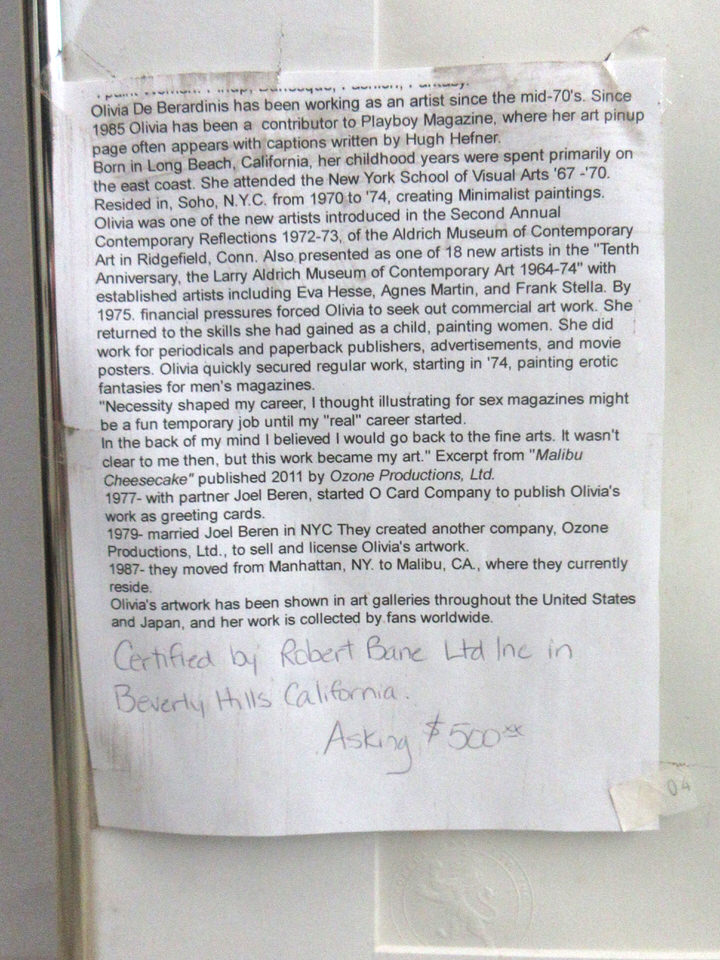 Olivia De Berardinis has been working as an artist since the mid-70's. Since
1985 Olivia has been a contributor to Playboy Magazine, where her art pinup
page often appears with captions written by Hugh Hefner.
Born in Long Beach, California, her childhood years were spent primarily on
the east coast. She attended the New York School of Visual Arts '67 -'70.
Resided in, Soho, N.Y.C. from 1970 to '74, creating Minimalist paintings.
Olivia was one of the new artists introduced in the Second Annual
Contemporary Reflections 1972-73, of the Aldrich Museum of Contemporary
Art in Ridgefield, Conn. Also presented as one of 18 new artists in the "Tenth
Anniversary, the Larry Aldrich Museum of Contemporary Art 1964-74" with
established artists including Eva Hesse, Agnes Martin, and Frank Stella. By
1975. financial pressures forced Olivia to seek out commercial art work. She
returned to the skills she had gained as a child, painting women. She did
work for periodicals and paperback publishers, advertisements, and movie
posters. Olivia quickly secured regular work, starting in '74, painting erotic
fantasies for men's magazines.
"Necessity shaped my career, I thought illustrating for sex magazines might
be a fun temporary job until my "real" career started.
In the back of my mind I believed I would go back to the fine arts. It wasn't
clear to me then, but this work became my art." Excerpt from "Malibu
Cheesecake" published 2011 by Ozone Productions, Ltd.
1977- with partner Joel Beren, started O Card Company to publish Olivia's
work as greeting cards.
1979- married Joel Beren in NYC They created another company, Ozone
Productions, Ltd., to sell and license Olivia's artwork.
1987- they moved from Manhattan, NY. to Malibu, CA., where they currently
reside.
Olivia's artwork has been shown in art galleries throughout the United States
and Japan, and her work is collected by fans worldwide.
Certified by Robert Bane Ltd Inc in
Beverly Hills California.
Asking $500xx
04